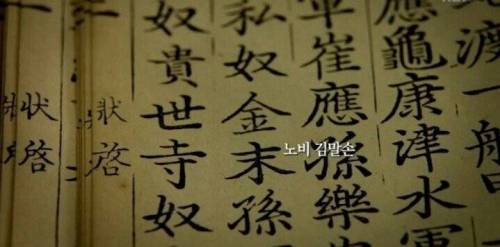 渡一船
應龜康津水軍
平崔應孫樂
私奴金末孫
奴貴世寺奴
狀啓
狀啓
노비 김말손